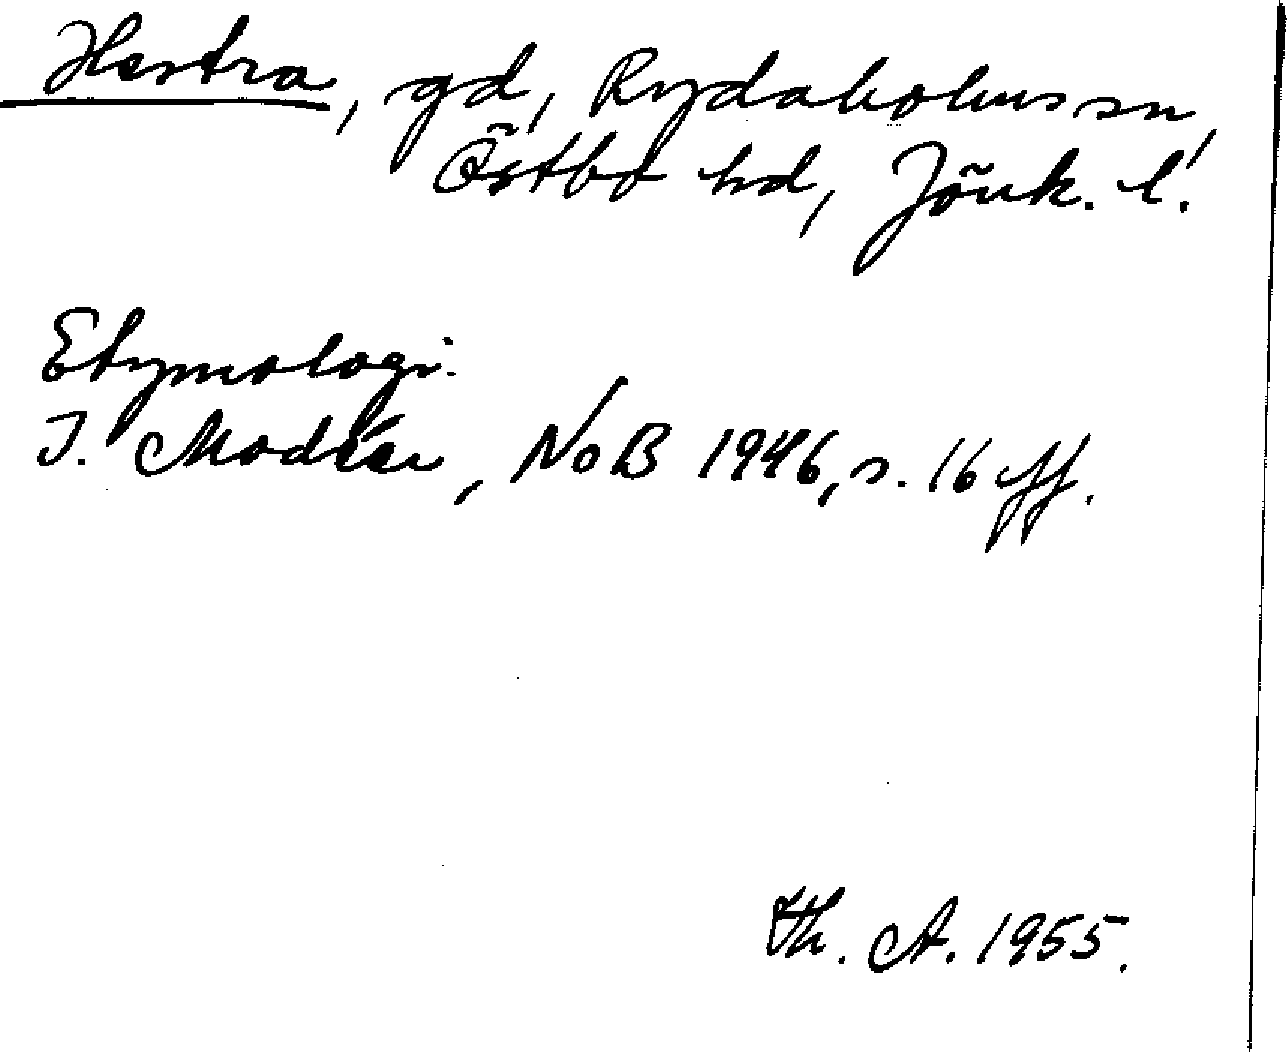 Hestra, gd, Rydaholms sn,
Östbo hd, Jönk. l.
Etymologi.
I. Modéer, NoB 1946, s. 16 ff.
Th. A. 1955.